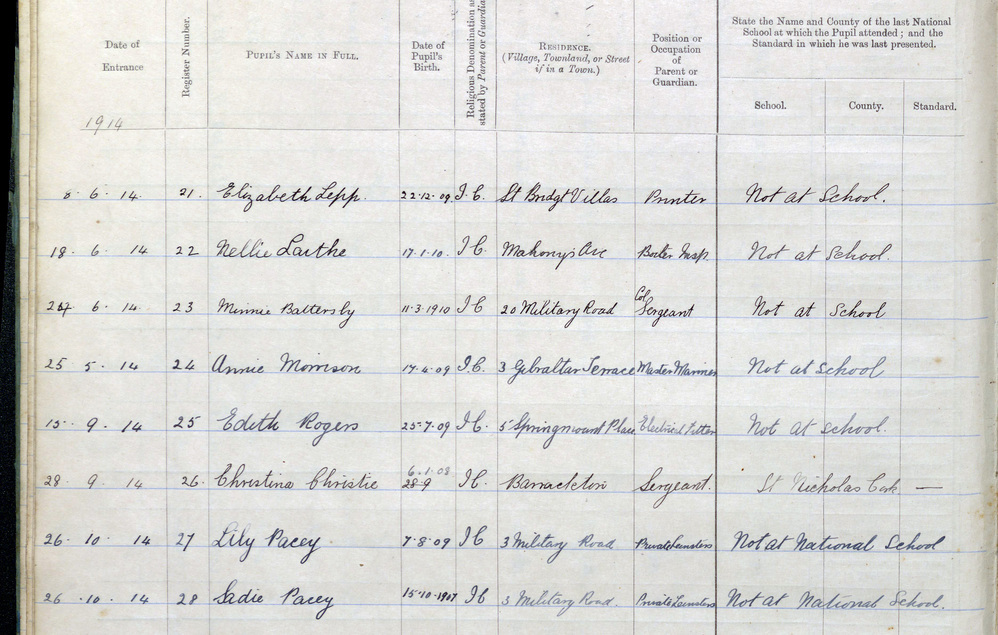 Date of Entrance
Register Number.
PUPIL'S NAME IN FULL.
Date of Pupil's Birth.
Religious Denomination as stated by Parent or Guardian
RESIDENCE.
(Village, Townland, or Street if in a Town.)
Position or Occupation of Parent or Guardian.
State the Name and County of the last National School at which the Pupil attended; and the Standard in which he was last presented.
School. County. Standard.
1914
8 . 6 . 14. 21. Elizabeth Lepp. 22-12-09 I.C. St Bridgt Villas Printer Not at School.
18. 6 14 22 Nellie 17.1.10. I C. Mahonys Ave Boiler Insp. Not at School.
6 . 14 23 Minnie Battersby 11.3.1910 I C 20 Military Road Col Sergeant Not at School
25 5. 14 24 Annie Morrison 17.4.09 I.C. 3 Gibraltar Terrace Master Mariner Not at School
15. 9. 14 25 Edith Rogers 25-7.09 I.C. 5 Springmount Place Electrical Fitter Not at School.
6.1.08
28. 9 14 26. Christina Christie 28-9 I C. Barrackton Sergeant. St Nicholas Cork —
26. 10. 14 27 Lily Pacey. 7.8.09 I C 3 Military Road Private Leinsters Not at National School
26 .10. 14 28 Sadie Pacey 15.10.1907 I C 3 Military Road. Private Leinsters Not at National School.